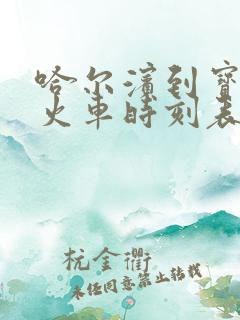 哈尔滨到宝
火车时刻表
杭金衢
未经同意禁止转载